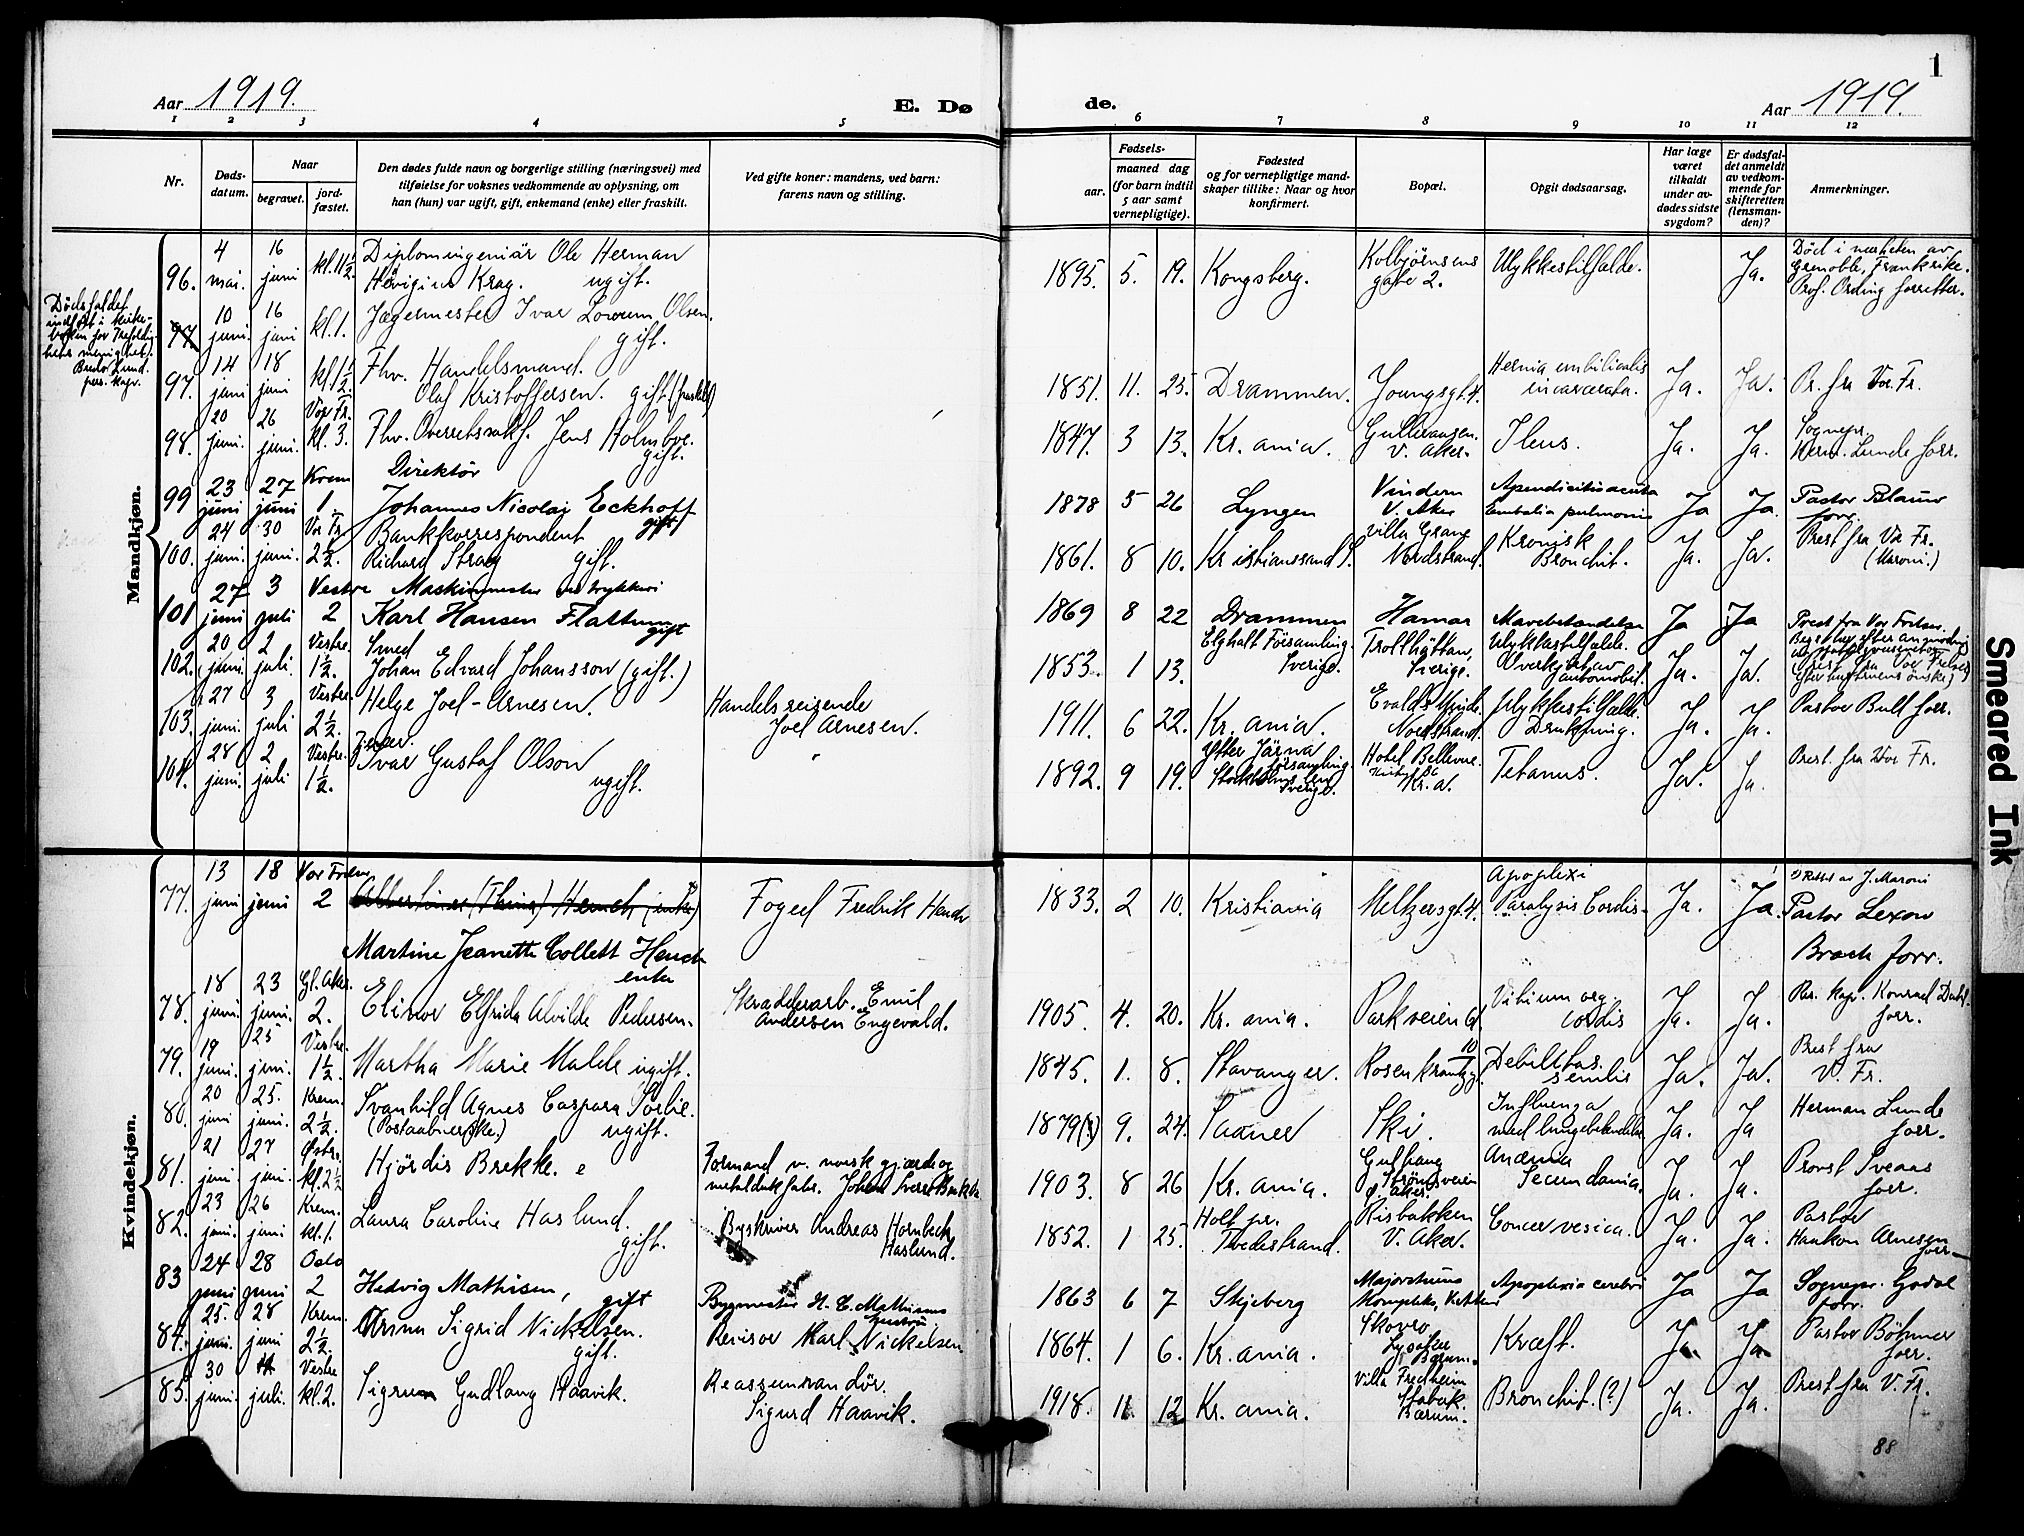 1
Aar 1919.
E. Dø
de.
Aar 1919.
1 2 3 4 5 6 7 8 9 10 11 12
Nr.
Døds-
datum.
Naar
begravet.
jord-
fæstet.
Den dødes fulde navn og borgerlige stilling (næringsvei) med
tilføielse for voksnes vedkommende av oplysning, om
han (hun) var ugift, gift, enkemand (enke) eller fraskilt.
Ved gifte koner: mandens, ved barn:
farens navn og stilling.
Fødsels-
aar.
maaned dag
(for barn indtil
5 aar samt
vernepligtige).
Fødested
og for vernepligtige mand-
skaper tillike: Naar og hvor
konfirmert.
Bopæl.
Opgit dødsaarsag.
Har læge
været
tilkaldt
under av-
dødes sidste
sygdom?
Er dødsfal-
det anmeldt
av vedkom-
mende for
skifteretten
(lensman-
den)?
Anmerkninger.
Mandkjøn.
96. 4 mai. 16 juni kl. 1½. Diplomingeniør Ole Herman
Krag. ugift. 1895. 5. 19. Kongsberg. Kolbjörnsens
gate 2. Ulykkestilfælde. Ja. Død i nærheten av
Grenoble, Frankrike.
Prof. Ording forretter.
Dødsfaldet
indført i kirke-
boken for Trefoldig-
hets menighet.
Lund.
pers. kap.
97. 10 juni. 16 juni kl. 1. Jægermester Ivar Olsen.
gift.
97. 14 juni 18 juni kl. 1½ Fhv. Handelsmand.
Olaf Kristoffersen. gift. 1851. 11. 25. Drammen. Youngsgt. 4. Hernia umbilicalis
incarcerata. Ja. Ja. Pr. fra Vor Fr.
98. 20 juni. 26 juni. Vor Fr. kl. 3. Fhv. Overretssakf. Jens Holmboe.
gift. 1847. 3 13. Kr. ania.
V. Aker. Ileus. Ja. Ja. Sognepr.
Herm. Lunde forr.
99 23 juni 27 juni Krem 1. Direktör
Johannes Nicolai Eckhoff
gift 1878 5 26 Lyngen Vindern
V. Aker Apendicitis acuta
Embolia pulmonis Ja Ja. Pastor Blauw
forr.
100. 24 juni. 30 juni. Vor Fr. 2½. Bankkorrespondent
Richard Stray gift. 1861. 8 10. Kristianssand S. Villa Grane
Nordstrand. Kronisk
Bronchit. Ja. Ja. Prest fra Vor Fr.
(Maroni.)
101 27 juni 3 juli Vestre 2 Maskinmester
Karl Hansen Flattum
gift 1869 8 22 Drammen Hamar Mavebetændelse Ja Ja Prest fra Vor Frelser.
102. 20 juni. 2 juli. Vestre. 1½. Smed
Johan Edvard Johansson (gift.) 1853. 1 13. Församling.
Sverige. Trollhättan,
Sverige. Ulykkestilfælde.
Overkjørt av
automobil. Ja. Ja.
103. 27 juni. 3 juli Vestre. 2½. Helge Joel-Arnesen. Handelsreisende
Joel Arnesen. 1911. 6 22. Kr. ania.
Nordstrand. Ulykkestilfælde.
Drukning. Ja. Ja. Pastor Bull forr.
104. 28 juni 2 juli Vestre. 1½. Ivar Gustaf Olson
ugift. 1892. 9 19. Ytter Järna
församling.
Stockholms län
Sverige. Hotel Bellevue.
Kr. a. Tetanus. Ja. Ja. Prest fra Vor Fr.
Kvindekjøn.
77. 13 juni 18 juni Vor Frels. 2
Martine Jeanette Collett Hench
enke Foged Fredrik Hench 1833. 2 10. Kristiania Meltzersgt. 4. Apoplexi
Paralysis Cordis. Ja. Ja. 1) Rettet av J. Maroni
Pastor Lexow
Brach forr.
78. 18 juni. 23 juni. Gl. Aker. 2. Elinor Elfrida Alvilde Pedersen. Skrædderarb. Emil
Andersen Engevald. 1905. 4. 20. Kr. ania. Parkveien Vitium org
cordis Ja. Ja. Pers. kap. Konrad Dahl
forr.
79. 19 juni. 25 juni. Vestre. 1½. Martha Marie Malde ugift. 1845. 1. 8. Stavanger. Rosenkrantzg. 10 Debilitas
senilis Ja. Ja. Prest fra
V. Fr.
80. 20 juni 25. juni. Krem. 2½. Svanhild Agnes Caspara Sörlie.
ugift. 1879(?) 9. 24. Saaner Ski. Influenza
med lungebetændelse Ja. Ja Herman Lunde
forr.
81. 21 juni. 27 juni. Østre. kl. 2½ Hjördis Brekke. Formand v. norsk gjærde og
metaldukfabr. Johan Sverre Brekke 1903. 8 26 Kr. ania.
Strömsveien
Ø. Aker. Anæmia
Secundaria. Ja. Ja. Provst Sveaas
forr.
82. 23 juni. 26 juni. Krem. kl. 1. Laura Caroline Haslund.
gift. Byskriver Andreas Hornbeck
Haslund. 1852. 1 25. Holt pr.
Tvedestrand. Risbakken
V. Aker. Cancer vesica. Ja. Ja. Pastor
Haakon Arnesen
forr.
83 24 juni 28 juni Oslo 2 Hedvig Mathisen,
gift Bygmester H. C. Mathisens
hustru. 1863 6 7 Skjeberg Majorstuens
kompleks, V. Aker Apoplexia cerebri Ja Ja Sognepr. Godal
forr.
84. 25. juni. 28 juni Krem. 2½. Anna Sigrid Nickelsen.
gift. Revisor Karl Nickelsen 1864. 1 6. Kr. ania. Skovro
Lysaker
Bærum. Kræft. Ja. Ja Pastor Böhmer
forr.
85. 30 juni. juli. Vestre kl. 2. Sigrun Gudlaug Haavik. Reassurandör.
Sigurd Haavik. 1918. 11. 12 Kr. ania. Villa Fredheim
Stabæk.
Bærum. Bronchit. (?) Ja. Ja. Prest fra V. Fr.
88
Smeared Ink